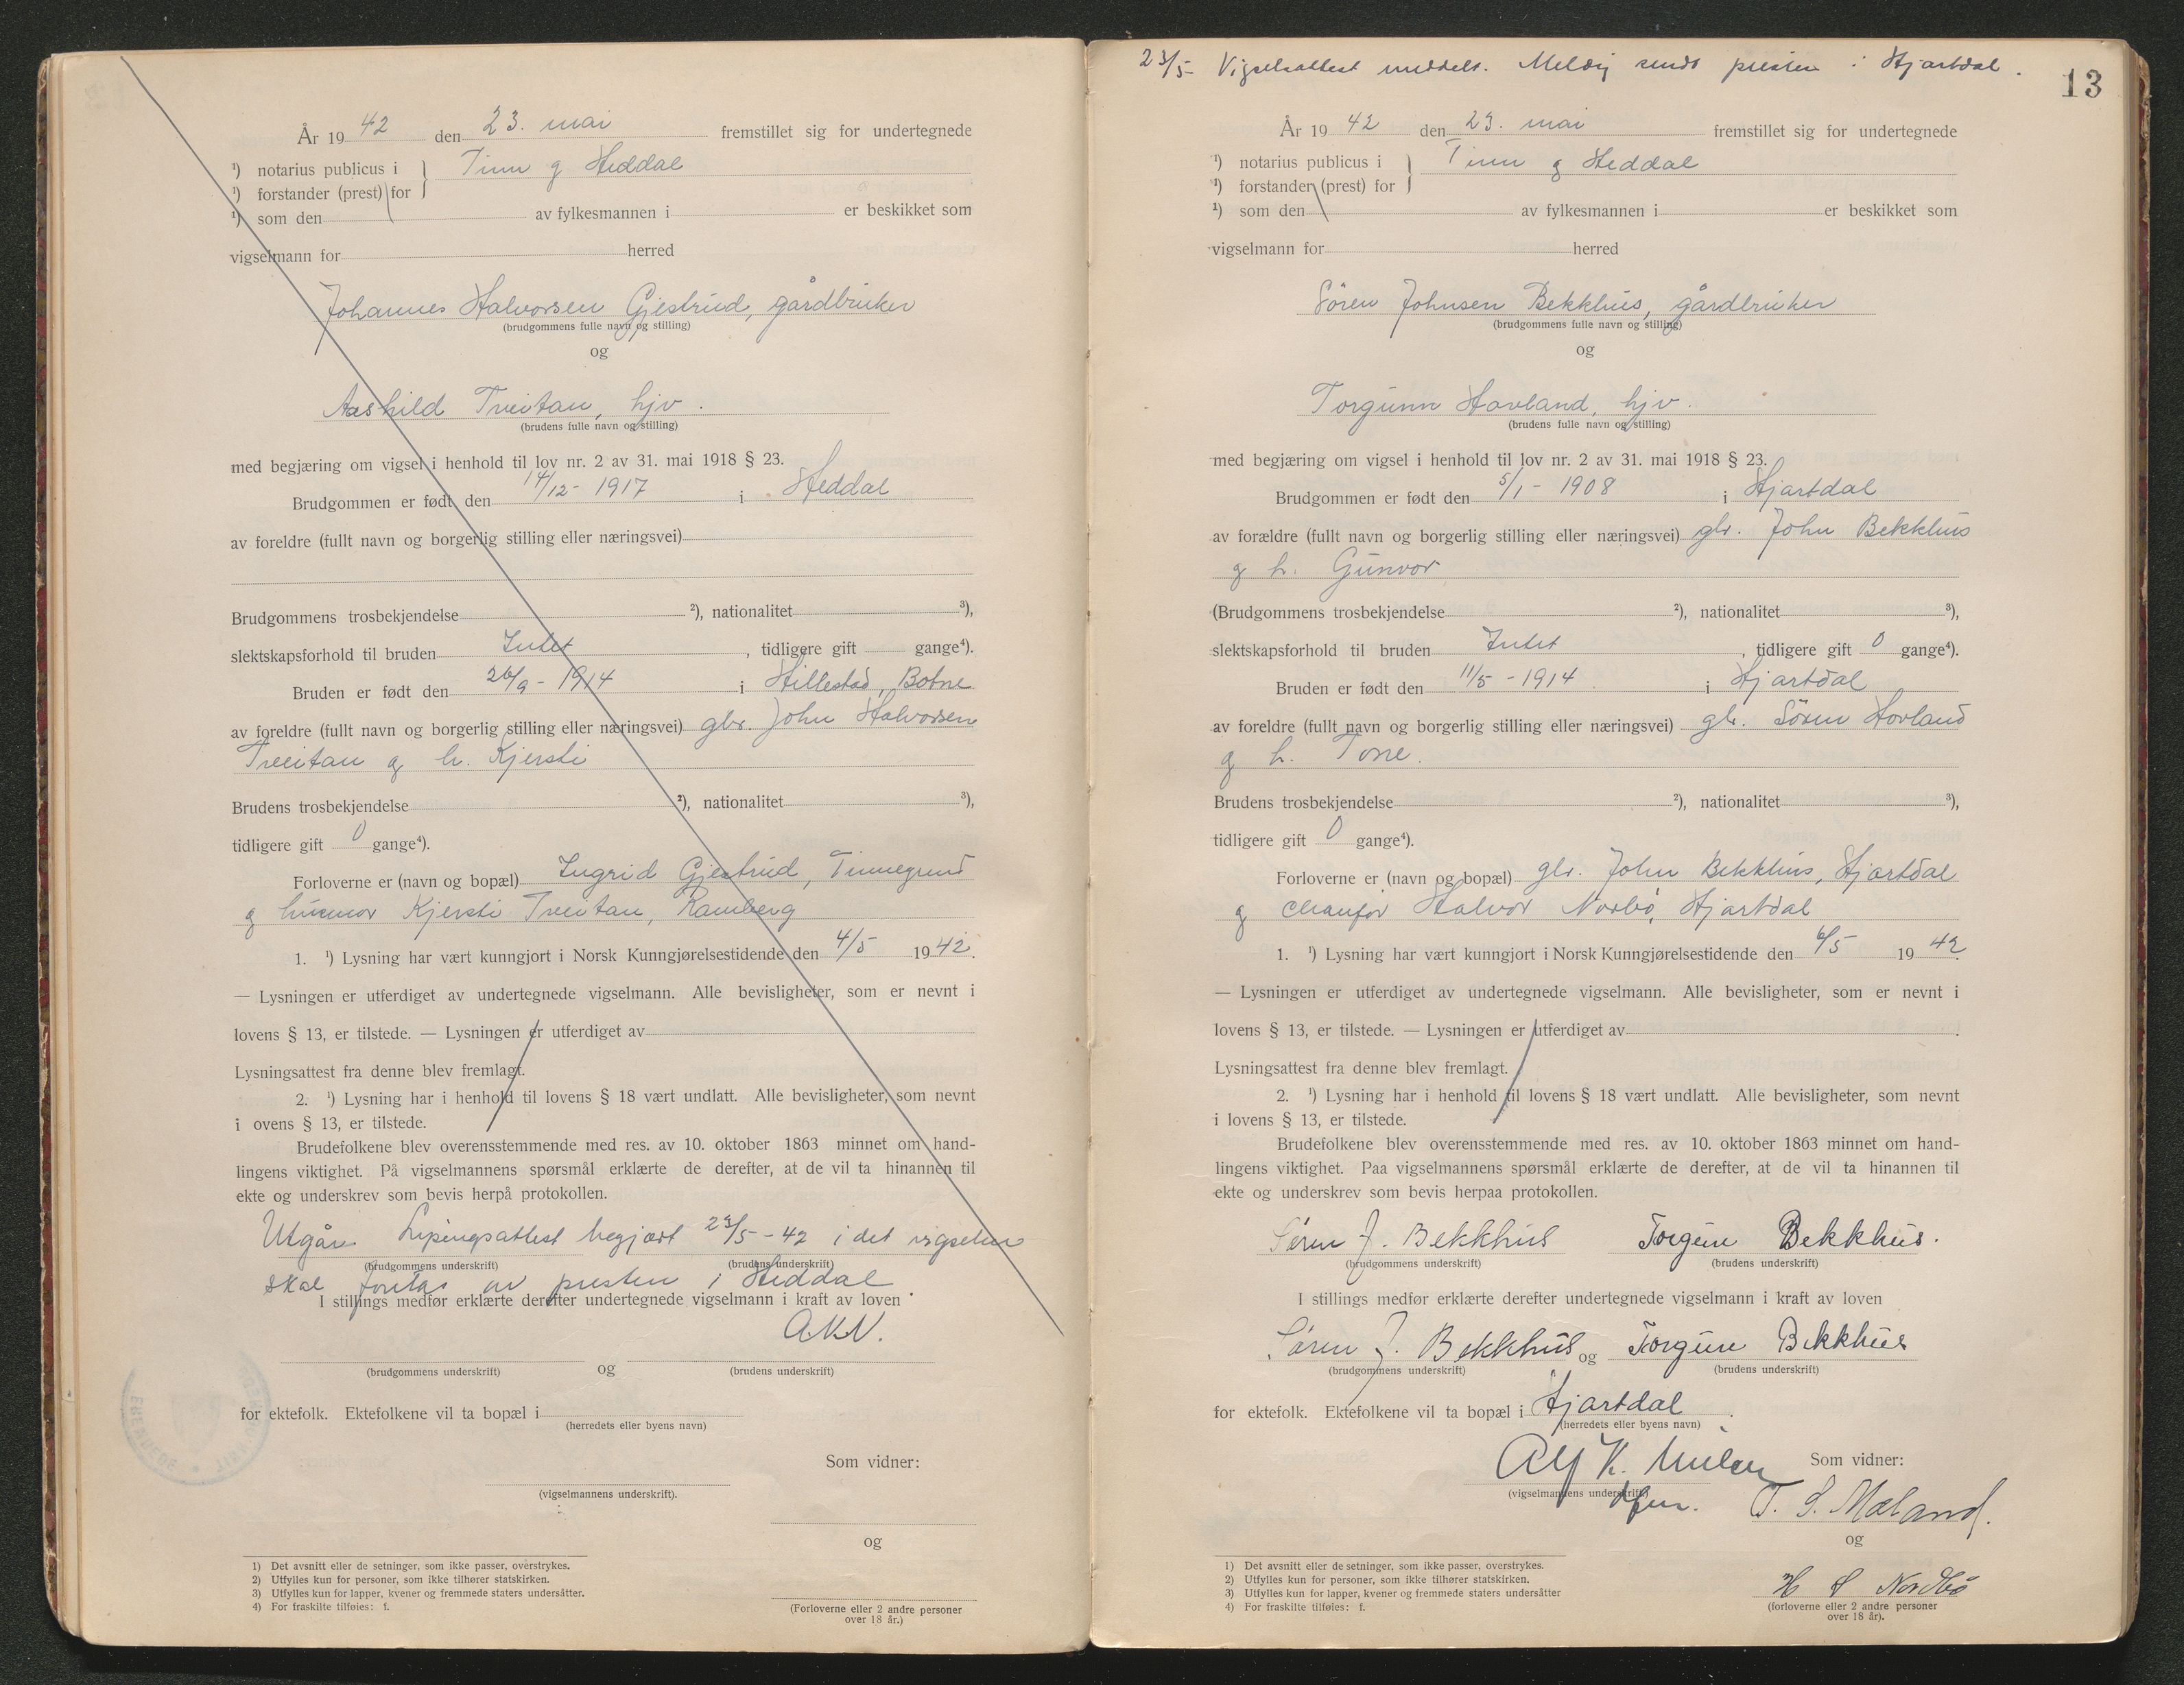 År 19 42 den 23. mai fremstillet sig for undertegnede
¹) notarius publicus i } Tinn og Heddal
¹) forstander (prest) for
¹) som den av fylkesmannen i er beskikket som
vigselmann for herred
Johannes Halvorsen Gjestrud, gårdbruker
(brudgommens fulle navn og stilling)
og
Aashild Treitan, hjv.
(brudens fulle navn og stilling)
med begjæring om vigsel i henhold til lov nr. 2 av 31. mai 1918 § 23.
Brudgommen er født den 14/12- 1917 i Heddal
av foreldre (fullt navn og borgerlig stilling eller næringsvei)
Brudgommens trosbekjendelse ²), nationalitet ³),
slektskapsforhold til bruden Intet, tidligere gift gange⁴).
Bruden er født den 26/9- 1914 i Hillestad, Botne
av foreldre (fullt navn og borgerlig stilling eller næringsvei) gbr. John Halvorsen
Treitan og h. Kjersti
Brudens trosbekjendelse ²), nationalitet ³),
tidligere gift 0 gange⁴).
Forloverne er (navn og bopæl) Ingrid Gjestrud, Tinnegrend
og husmor Kjersti Treitan, Ramberg
1. ¹) Lysning har vært kunngjort i Norsk Kunngjørelsestidende den 4/5 1942.
— Lysningen er utferdiget av undertegnede vigselmann. Alle bevisligheter, som er nevnt i
lovens § 13, er tilstede. — Lysningen er utferdiget av
Lysningsattest fra denne blev fremlagt.
2. ¹) Lysning har i henhold til lovens § 18 vært undlatt. Alle bevisligheter, som nevnt
i ovens § 13, er tilstede.
Brudefolkene blev overensstemmende med res. av 10. oktober 1863 minnet om hand-
lingens viktighet. På vigselmannens spørsmål erklærte de derefter, at de vil ta hinannen til
ekte og underskrev som bevis herpå protokollen.
Utgår. Lysingsattest begjært 23/5-42 i det vigselen
(brudgommens underskrift) (brudens underskrift)
skal foretas av presten i Heddal.
I stillings medfør erklærte derefter undertegnede vigselmann i kraft av loven
AKN.
(brudgommens underskrift) og (brudens underskrift)
for ektefolk. Ektefolkene vil ta bopæl i
(herredets eller byens navn)
Som vidner:
(vigselmannens underskrift).
og
1) Det avsnitt eller de setninger, som ikke passer, overstrykes.
2) Utfylles kun for personer, som ikke tilhører statskirken.
3) Utfylles kun for lapper, kvener og fremmede staters undersåtter.
4) For fraskilte tilføies: f.
(Forloverne eller 2 andre personer
over 18 år.)
23/5- Vigselsattest meddelt. Melding sendt presten i Hjartdal.
13
År 19 42 den 23. mai fremstillet sig for undertegnede
¹) notarius publicus i } Tinn og Heddal
¹) forstander (prest) for
¹) som den av fylkesmannen i er beskikket som
vigselmann for herred
Søren Johnsen Bekkhus, gårdbruker
(brudgommens fulle navn og stilling)
og
Torgunn Hovland, hjv.
(brudens fulle navn og stilling)
med begjæring om vigsel i henhold til lov nr. 2 av 31. mai 1918 § 23.
Brudgommen er født den 5/1- 1908 i Hjartdal
av forældre (fullt navn og borgerlig stilling eller næringsvei) gbr. John Bekkhus
og h. Gunvor
(Brudgommens trosbekjendelse ²), nationalitet ³),
slektskapsforhold til bruden Intet, tidligere gift 0 gange⁴).
Bruden er født den 11/5-1914 i Hjartdal
av foreldre (fullt navn og borgerlig stilling eller næringsvei) gbr. Søren Hovland
og h. Tone.
Brudens trosbekjendelse ²), nationalitet ³),
tidligere gift 0 gange⁴).
Forloverne er (navn og bopæl) gbr. John Bekkhus, Hjartdal
og chaufør Halvor Norbø, Hjartdal
1. ¹) Lysning har vært kunngjort i Norsk Kunngjørelsestidende den 6/5 1942.
— Lysningen er utferdiget av undertegnede vigselmann. Alle bevisligheter, som er nevnt i
lovens § 13, er tilstede. — Lysningen er utferdiget av
Lysningsattest fra denne blev fremlagt.
2. ¹) Lysning har i henhold til lovens § 18 vært undlatt. Alle bevisligheter, som nevnt
i lovens § 13, er tilstede.
Brudefolkene blev overensstemmende med res. av 10. oktober 1863 minnet om hand-
lingens viktighet. Paa vigselmannens spørsmål erklærte de derefter, at de vil ta hinannen til
ekte og underskrev som bevis herpaa protokollen.
Søren J. Bekkhus Torgun Bekkhus.
(brudgommens underskrift) (brudens underskrift)
I stillings medfør erklærte derefter undertegnede vigselmann i kraft av loven
Søren J. Bekkhus og Torgun Bekkhus
(brudgommens underskrift) (brudens underskrift)
for ektefolk. Ektefolkene vil ta bopæl i Hjartdal.
(herredets eller byens navn)
Alf K. Nilsen Som vidner:
(vigselmannens underskrift)
T. S. Mæland.
og
H S Nordbø
1) Det avsnitt eller de setninger, som ikke passer, overstrykes.
2) Utfylles kun for personer, som ikke tilhører statskirken.
3) Utfylles kun for lapper, kvener og fremmede staters undersåtter
4) For fraskilte tilføies: f.
(forloverne eller 2 andre personer
over 18 år).